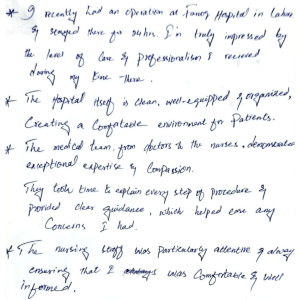 * I recently had an operation at Fauji Hospital in Lahore
& stayed there for 24hrs. I'm truly impressed by
the level of Care & Professionalism I received
during my time there.
* The Hospital itself is clean, well-equipped & organized,
Creating a Comfortable environment for Patients.
* The medical team, from doctors to the nurses, demonstrated
exceptional expertise & Compassion.
They took time to explain every step of procedure &
provided clear guidance, which helped ease any
Concerns I had.
* The nursing staff was Particularly attentive & always
ensuring that I was Comfortable & well
informed.